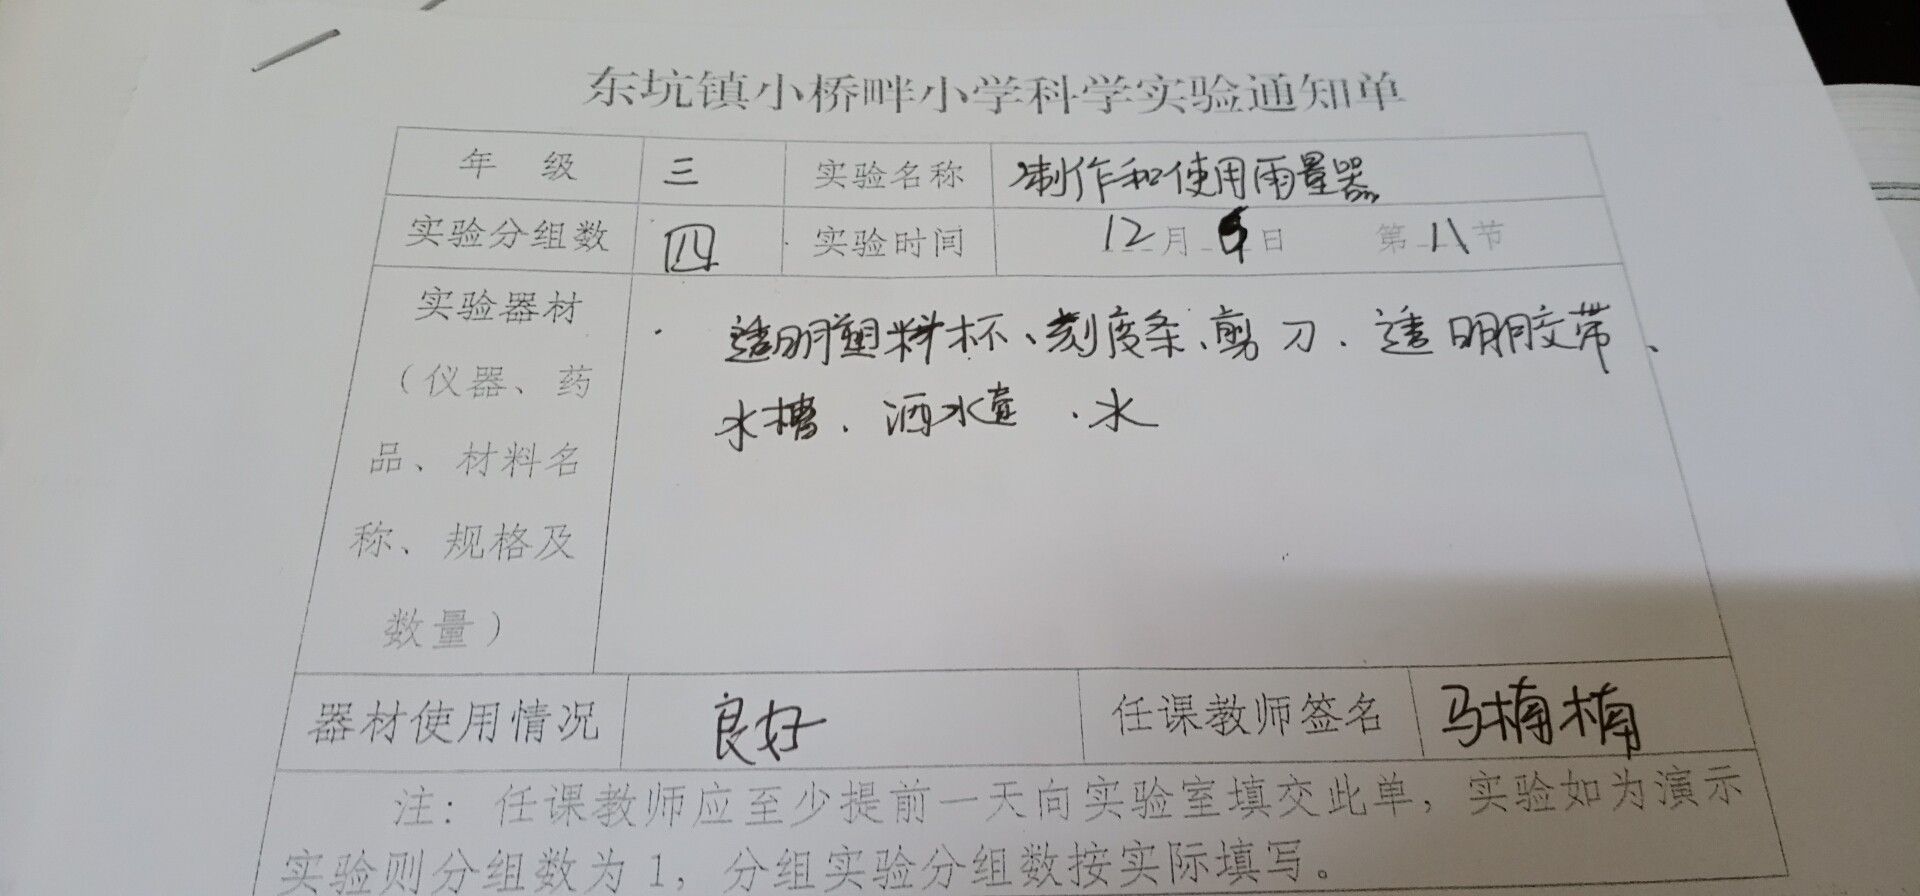 东坑镇小桥畔小学科学实验通知单
年 级 三 实验名称 制作和使用雨量器
实验分组数 四 实验时间 12月 日 第 节
实验器材
(仪器、药
品、材料名
称、规格及
数量)
透明塑料杯、刻度条、剪刀、透明胶带、
水槽、洒水壶、水
器材使用情况 良好 任课教师签名 马楠楠
注：任课教师应至少提前一天向实验室填交此单，实验如为演示
实验则分组数为1，分组实验分组数按实际填写。